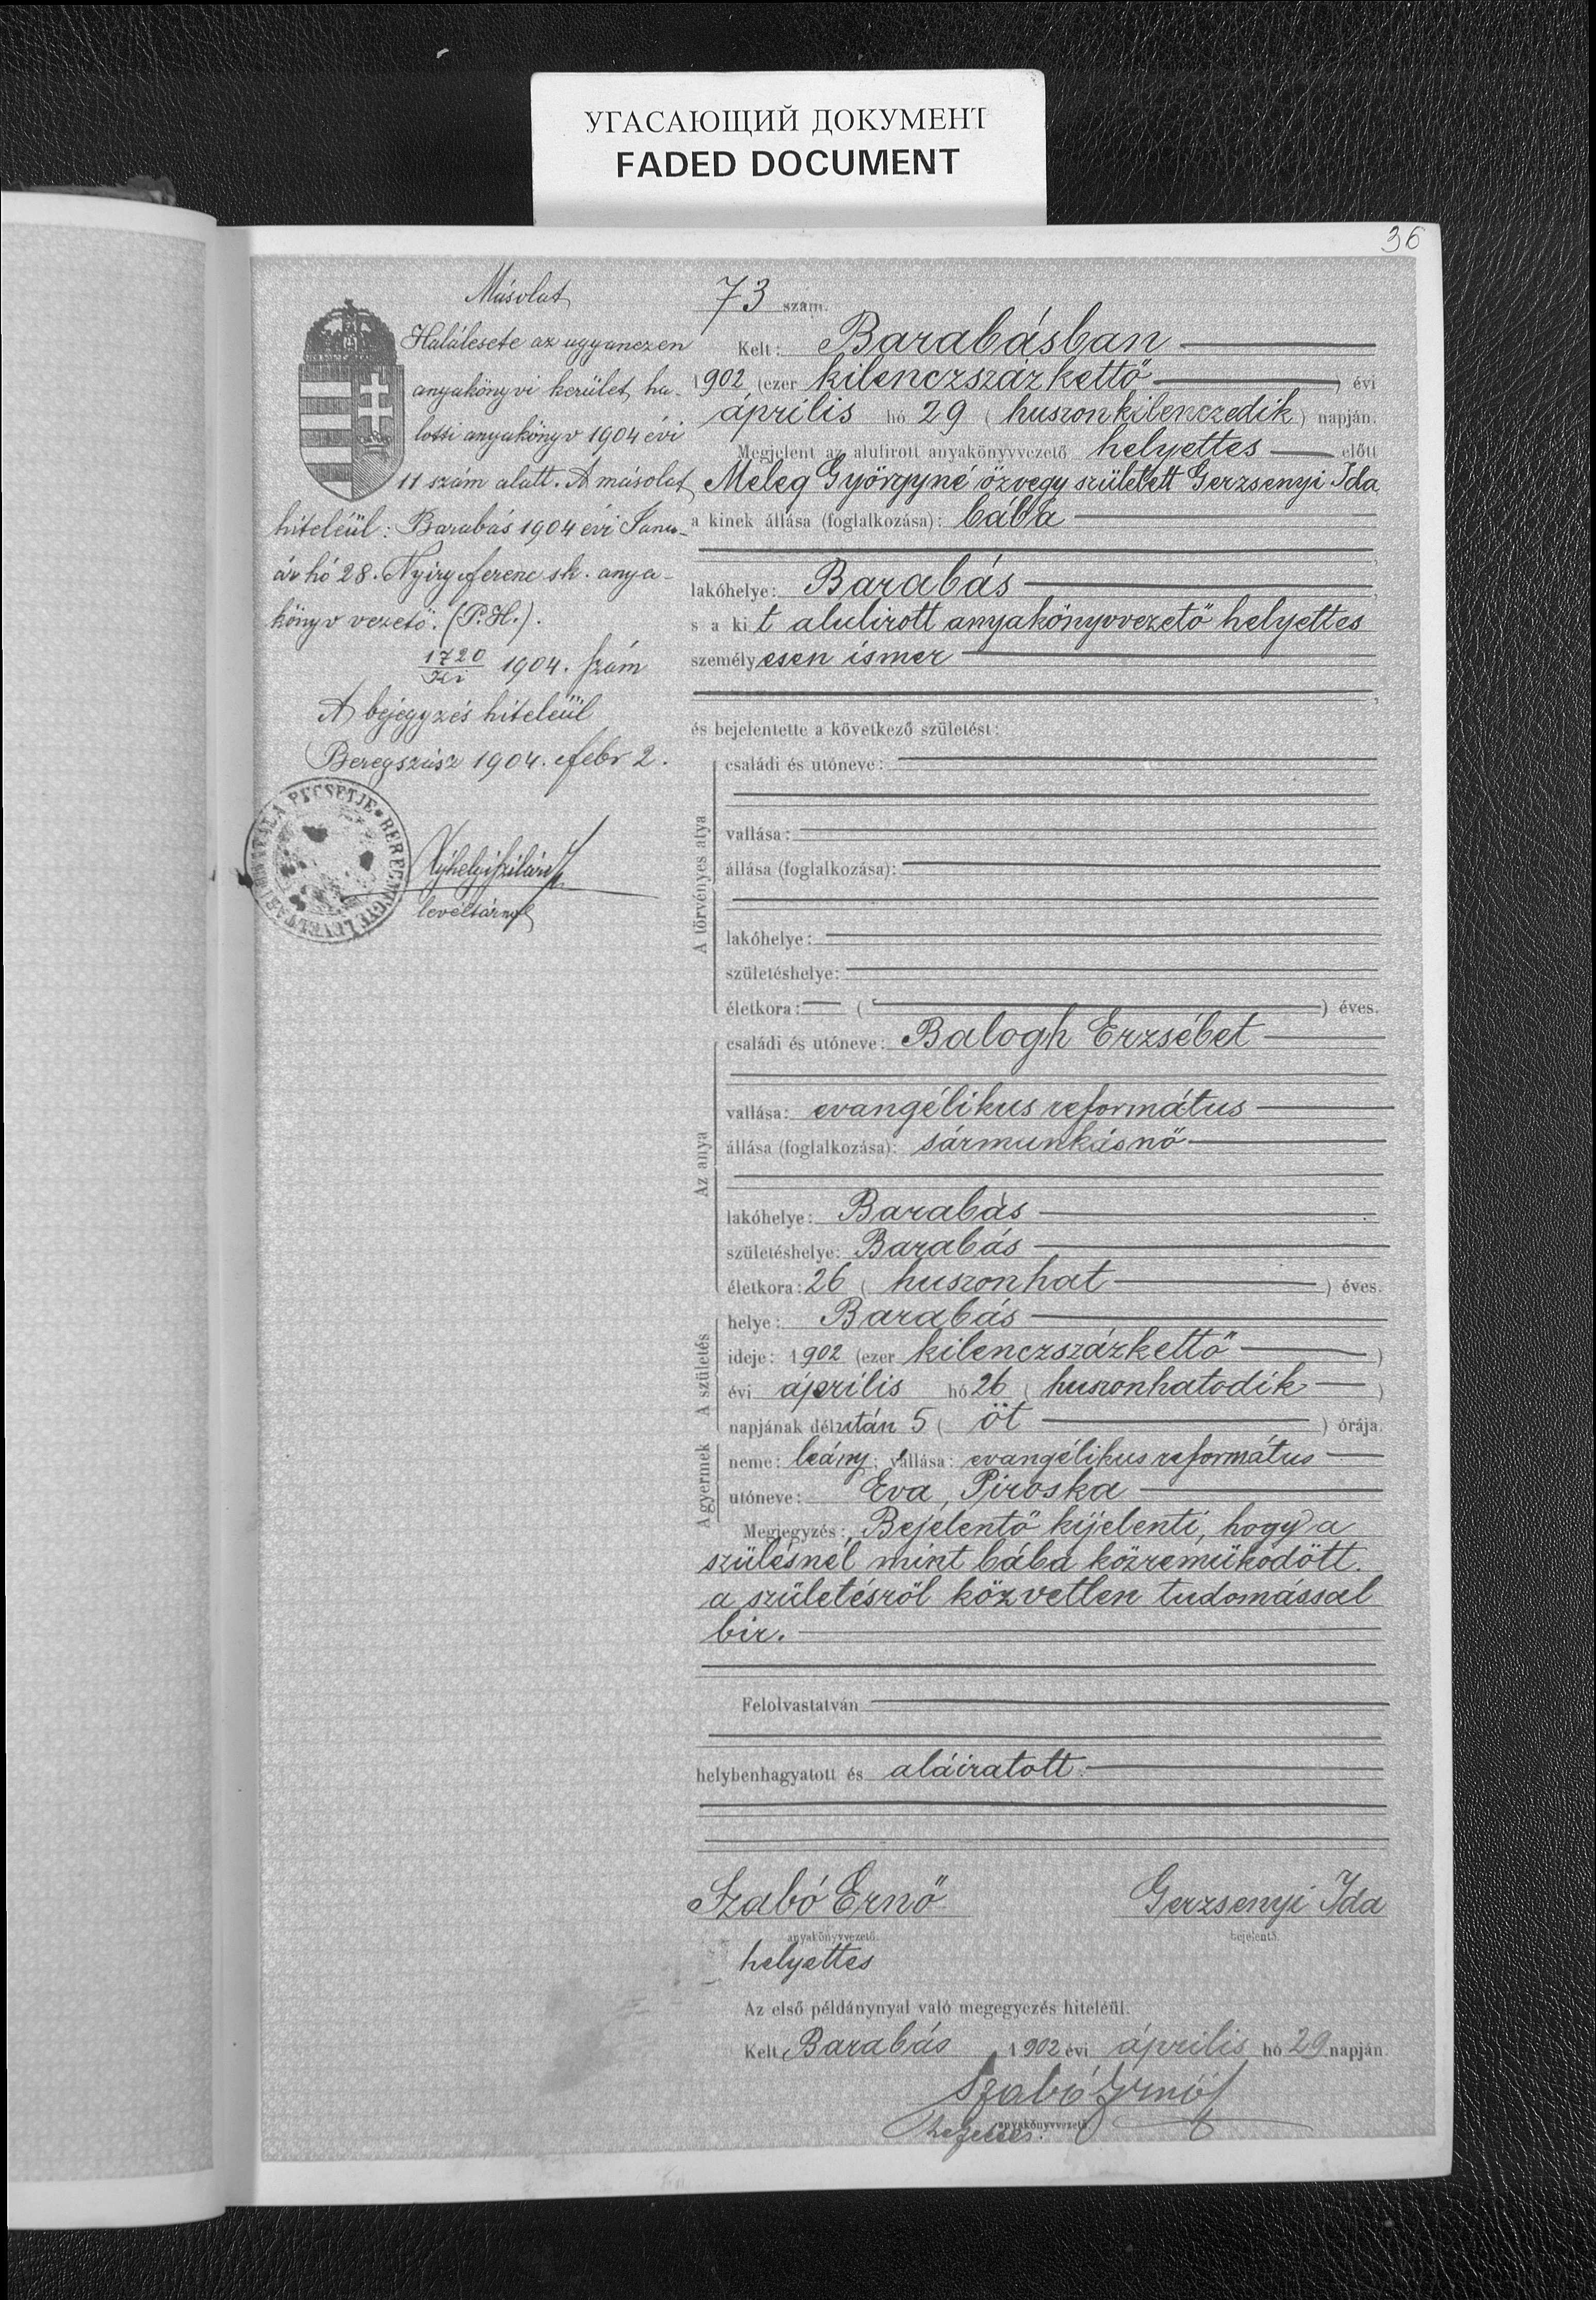 УГАСАЮЩИЙ ДОКУМЕНТ
FADED DOCUMENT
36
Másolat
Halálesete az ugyanezen
anyakönyvi kerület ha-
lotti anyakönyv 1904 évi
11 szám alatt. A másolat
hiteléül: Barabás 1904 évi Janu-
ár hó 28. Nyiry Ferenc sk. anya-
könyv vezető. (P.H.).
1720/Ki 1904. szám
A bejegyzés hiteléül
Beregszász 1904. febr 2.
levéltárnok
73 szám.
Kelt: Barabásban
1902 (ezer kilenczszázkettő) évi
április hó 29 (huszonkilenczedik) napján.
Megjelent az alulirott anyakönyvvezető helyettes előtt
Meleg Györgyné özvegy született Gerzsenyi Ida
a kinek állása (foglalkozása): bába
lakóhelye: Barabás
s a kit alulirott anyakönyvvezető helyettes
személyesen ismer
és bejelentette a következő születést:
A törvényes atya
családi és utóneve:
vallása:
állása (foglalkozása):
lakóhelye:
születéshelye:
életkora: ( ) éves.
Az anya
családi és utóneve: Balogh Erzsébet
vallása: evangélikus református
állása (foglalkozása): sármunkásnő
lakóhelye: Barabás
születéshelye: Barabás
életkora: 26 (huszonhat) éves.
A születés
helye: Barabás
ideje: 1902 (ezer kilenczszázkettő)
évi április hó 26 (huszonhatodik)
napjának délután 5 (öt) órája.
A gyermek
neme: leány; vallása: evangélikus református
utóneve: Eva, Piroska
Megjegyzés: Bejelentő kijelenti, hogy a
szülésnél mint bába közreműködött.
a születésről közvetlen tudomással
bir.
Felolvastatván
helybenhagyatott és aláiratott.
Szabó Ernő Gerzsenyi Ida
anyakönyvvezető. bejelentő.
helyettes
Az első példánynyal való megegyezés hiteléül.
Kelt Barabás 1902 évi április hó 29 napján
Szabó Ernő
anyakönyvvezető
helyettes.